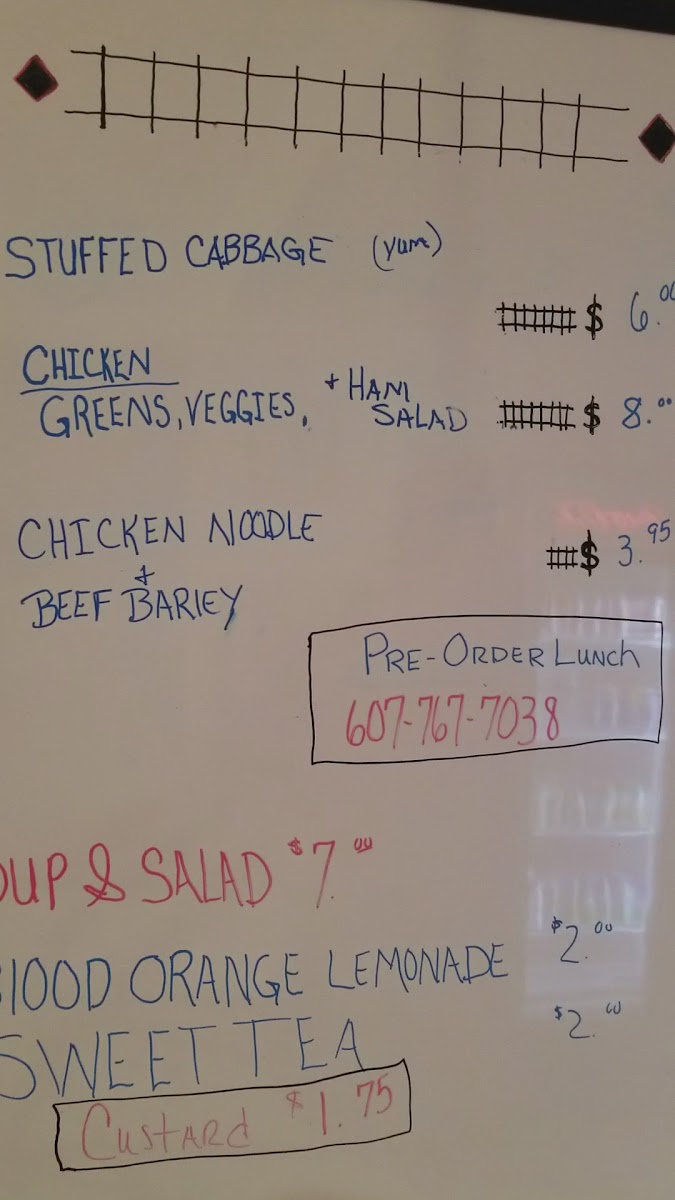 STUFFED CABBAGE (yum)
$ 6.00
CHICKEN
GREENS, VEGGIES, + HAM
SALAD $ 8.00
CHICKEN NOODLE
+ $ 3.95
BEEF BARLEY
PRE-ORDER LUNCH
607-767-7038
OUP & SALAD $7.00
BLOOD ORANGE LEMONADE $2.00
SWEET TEA $2.00
CUSTARD $1.75